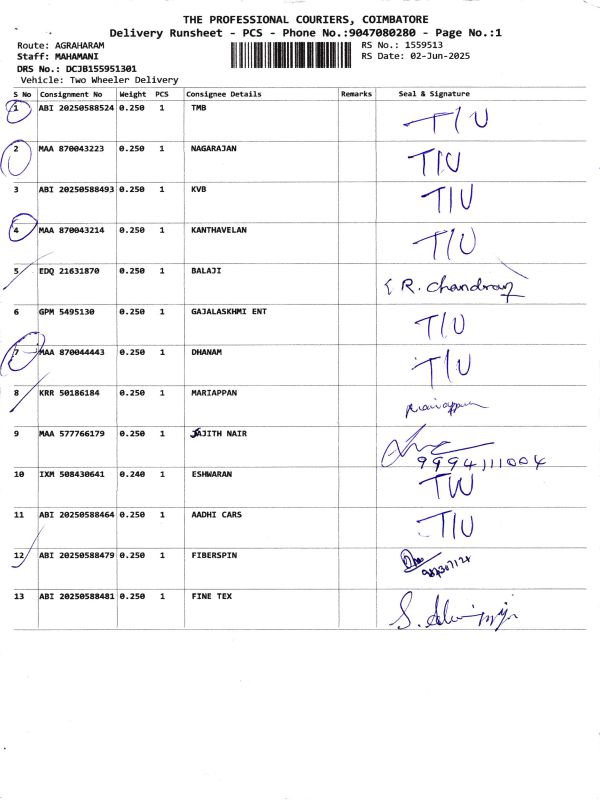 THE PROFESSIONAL COURIERS, COIMBATORE
Delivery Runsheet - PCS - Phone No.:9047080280 - Page No.:1
Route: AGRAHARAM RS No.: 1559513
Staff: MAHAMANI RS Date: 02-Jun-2025
DRS No.: DCJB155951301
Vehicle: Two Wheeler Delivery
S No Consignment No Weight PCS Consignee Details Remarks Seal & Signature
1 ABI 20250588524 0.250 1 TMB T/U
2 MAA 870043223 0.250 1 NAGARAJAN T/U
3 ABI 20250588493 0.250 1 KVB T/U
4 MAA 870043214 0.250 1 KANTHAVELAN T/U
5 EDQ 21631870 0.250 1 BALAJI R. Chandran
6 GPM 5495130 0.250 1 GAJALASKHMI ENT T/U
7 MAA 870044443 0.250 1 DHANAM T/U
8 KRR 50186184 0.250 1 MARIAPPAN Mariappan
9 MAA 577766179 0.250 1 JAJITH NAIR
9994111004
10 IXM 508430641 0.240 1 ESHWARAN T/U
11 ABI 20250588464 0.250 1 AADHI CARS T/U
12 ABI 20250588479 0.250 1 FIBERSPIN
13 ABI 20250588481 0.250 1 FINE TEX